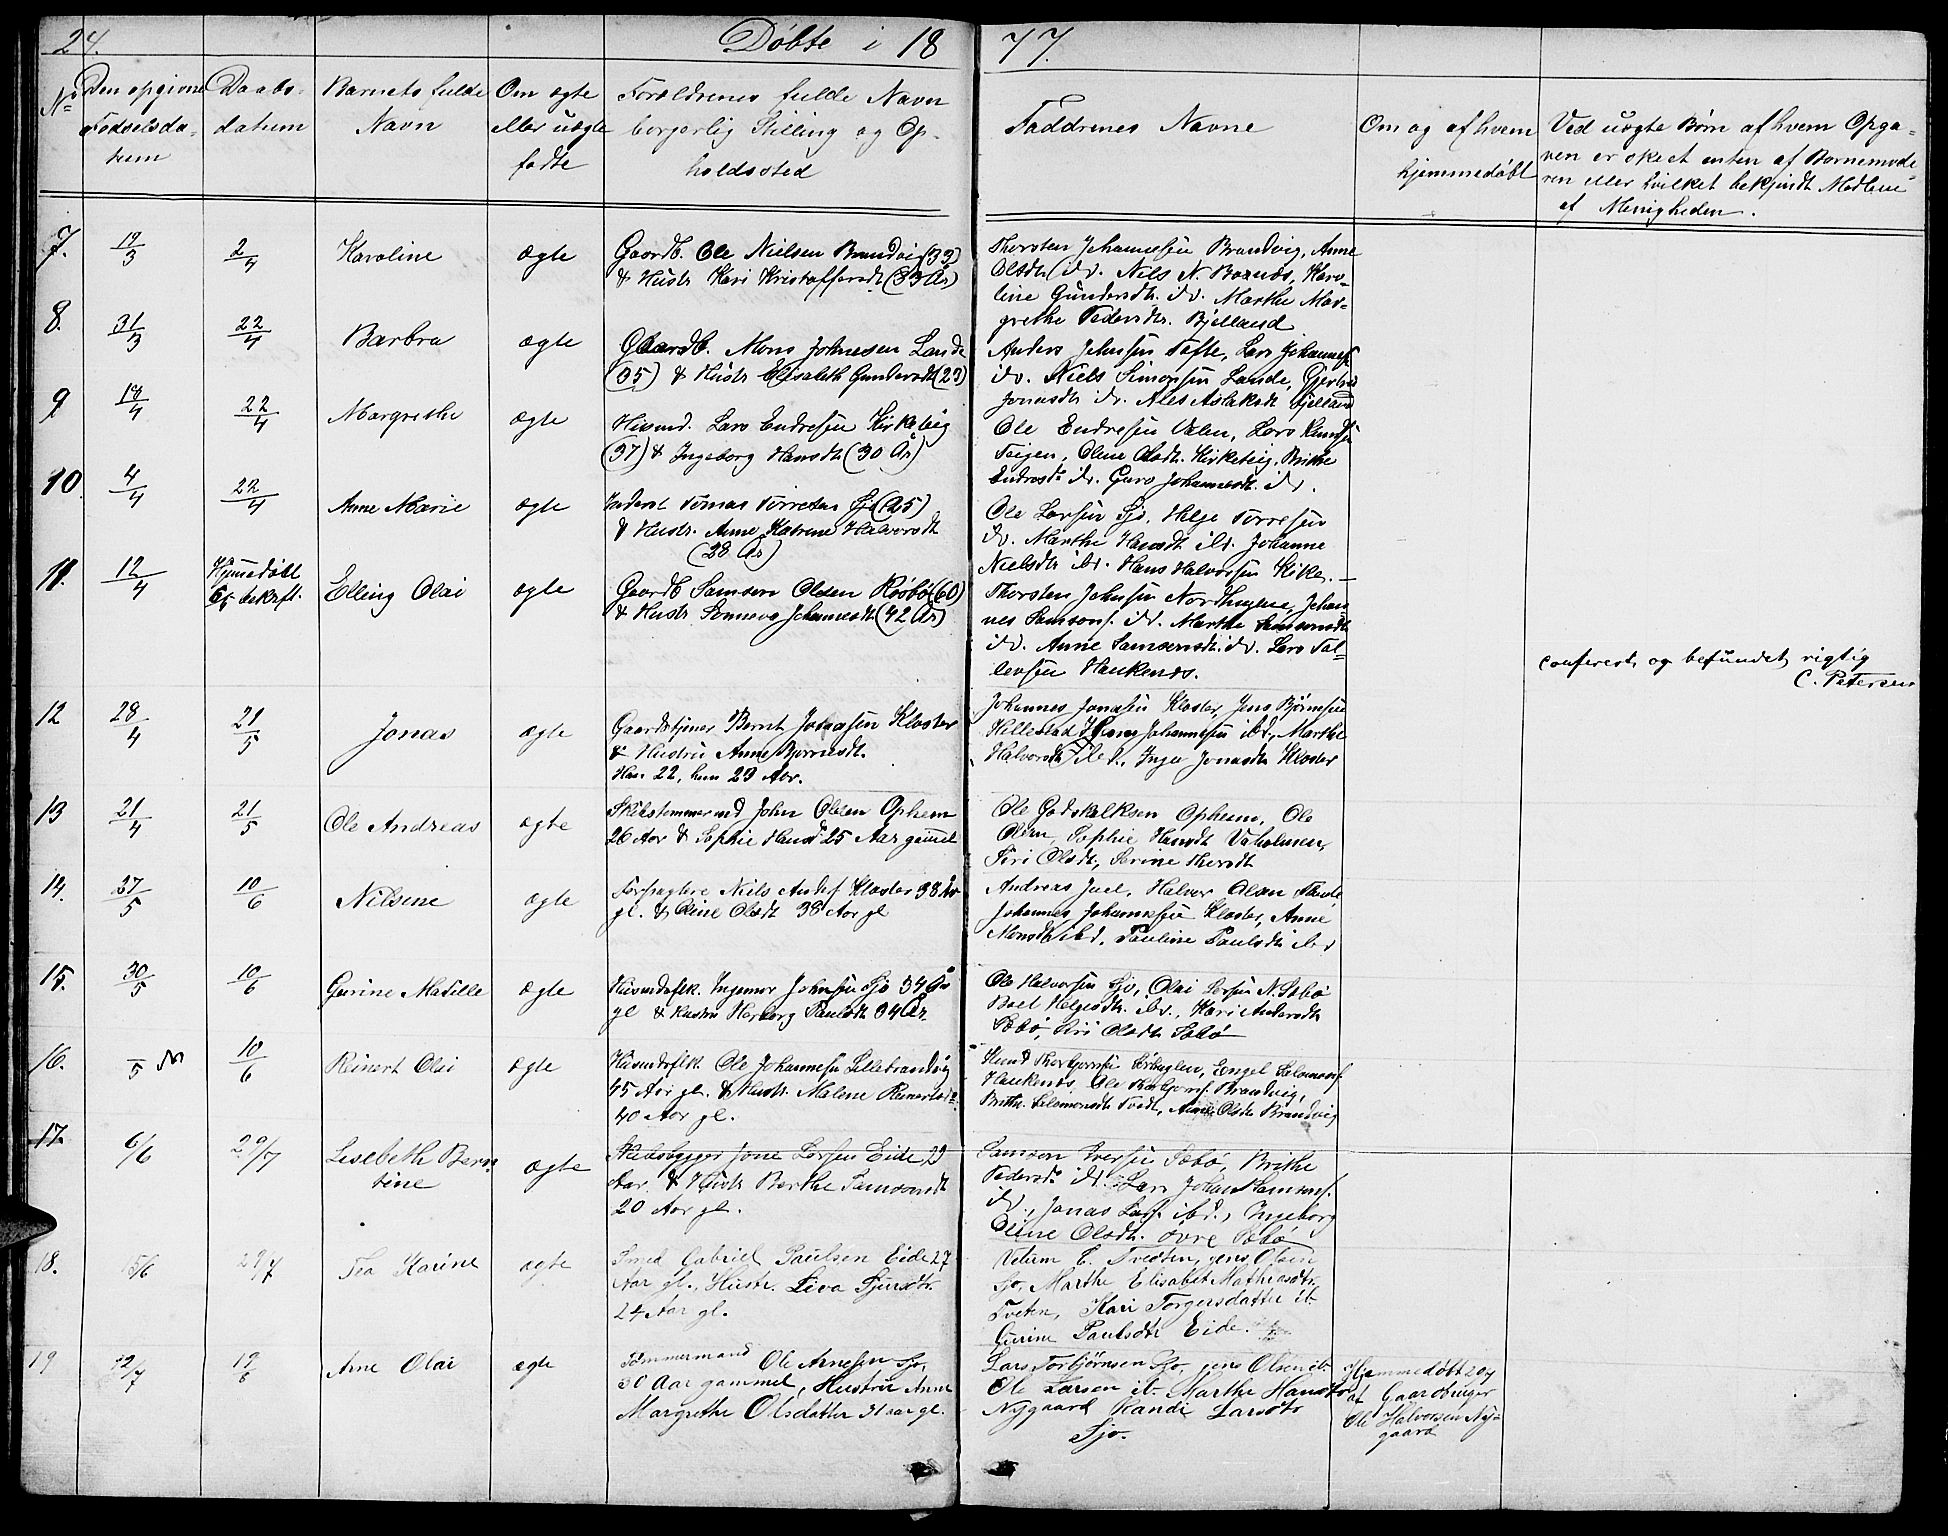 24.
Døbte i 18
77.
No
Den opgivne
Fødselsda-
tum
Daabs-
datum
Barnets fulde
Navn
Om ægte
eller uægte
fødte
Forældrenes fulde Navn
borgerlig Stilling og Op-
holdssted
Faddrenes Navne
Om og af hvem
hjemmedøbt
Ved uægte Børn af hvem Opga-
ven er skeet enten af Barnemode-
ren eller hvilket bekjendt Medlem
af Menigheden.
7.
19/3
2/4
Karoline
ægte
Gaardb. Ole Nielsen Brandvig (33)
& Hustr Kari Kristoffersdt (33 Ar)
Thorsten Johannesen Brandvig, Anne
Olsdt. idv. Nils N. Boknæs, Karo-
line Gundersdt. idv. Marthe Mar-
grethe Pedersdtr. Bjelland
8.
31/3
22/4
Barbra
ægte
Gaardb. Mons Johnesen Lande
(35) & Hustr Elisabeth Gundersdt (23)
Anders Johnsen Tofte, Lars Johannes
idv. Niels Simonsen Lande,
Jonasdt idv. Ales Aslaksdt Bjelland
9
18/4
22/4
Margrethe
ægte
Husmd. Lars Endresen Kirketeig
(37) & Ingeborg Hansdt (30 Ar)
Ole Endresen Valen, Lars Knudsen
Teigen, Oline Olsdt. Kirketeig, Brithe
Endresdt idv. Guro Johannesdt. idv.
10
4/4
22/4
Anne Marie
ægte
Inderst Tomas Torresen Sjo (25)
& Hustr. Anne Katrine Halvorsdt
(28 Ar)
Ole Larsen Sjo, Helge Torresen
idv. Marthe Hansdt idv. Johanne
Nielsdtr ibd. Hans Halvorsen Eike. —
11.
12/4
Hjemedøbt
bekræft.
Elling Olai
ægte
Gaardb Samson Olsen Røsbø (60)
& Hustr Sønneva Johannesdt (42 Ar)
Thorsten Johnsen Nordhuglene, Johan-
nes Samsons. idv. Marthe Samsonsdt
idv. Anne Samsonsdt. idv. Lars Tol-
levsen Haukenæs.
confereret og befundet rigtig
C. Petersen
12
28/4
21/5
Jonas
ægte
Gaardstjener Bernt Jonassen Kloster
& Hustru Anne Bjørnsdt.
Han 22, hun 23 Aar.
Johannes Jonasen Kloster, Jens Bjørnsen
Hillestad, Johannesen ibd., Marthe
Halvorsdt ibd., Inger Jonasdt Kloster
13
21/4
21/5
Ole Andreas
ægte
Skibstømmermd John Olsen Opheim
26 Aar & Sophie Hansd 25 Aar gammel
Ole Godskalksen Opheim, Ole
Olsen, Sophie Hansdt Vaholmen,
Siri Olsdt., Serine Iversdt
14.
27/5
10/6
Nilsine
ægte
Forpagtere Niels Anders Kloster 38 Aar
gl. & Oline Olsdt 38 Aar gl
Andreas Juel, Halvor Olsen Tavle
Johannes Johannesen Kloster, Anne
Monsdt ibd, Pauline Paulsdt ibd
15.
30/5
10/6
Gurine Matille
ægte
Husmdsflk. Ingemor Johnsen Sjo 34 Aar
gl & Hustru Herborg Paulsdt 34 Ar
Ole Halvorsen Sjo, Olai Larsen N. Sæbø
Boel Helgesdt ibd., Kari Andersdt
Sæbø, Siri Olsdt Sæbø
16.
/5
10/6
Reinert Olai
ægte
Husmdsflk. Ole Johannesen Lillebrandvig
45 Aar gl. & Hustr. Malene Reinertsdt.
40 Aar gl.
Knud Thorbjørnsen Sørhuglen, Engel Salomons
Haukenæs, Ole Torbjørns. Brandvig,
Brithe Salomonsdt Tvedt, Anne Olsdt Brandvig
17.
6/6
29/7
Lisebeth Bern
tine
ægte
Skibsbygger Jone Larsen Eide, 29
Aar & Hustr Berthe Samsonsdt
20 Aar gl.
Samson Iversen Sæbø, Brithe
Pedersdt idv. Lars Johan Samsons.
idv., Jonas Lars. ibd., Ingeborg
Eline Olsdt. øvre Sæbø
18.
15/6
29/7
Tea Karine
ægte
Smed Gabriel Paulsen Eide 27
Aar gl., Hustr. Siva Sjursdtr.
24 Aar gl.
E. Tvedten, Jens Olsen
Sjo, Marthe Elisabet Mathiasdtr.
Tveten, Kari Torgersdatter ib-
Gurine Paulsdtr Eide.
19
12/7
19/8
Arne Olai
ægte
Tømmermand Ole Arnesen Sjo,
30 Aar gammel, Hustru Anne
Margrethe Olsdatter 31 aar gl.
Lars Torbjørnsen Sjo, Jens Olsen ib-
Ole Larsen ib- Marthe Hansdtr
Nygaard Randi Larsdtr
Sjo.
Hjemmedøbt 20/7
af Gaardbruger
Ole Halvorsen Ny-
gaard